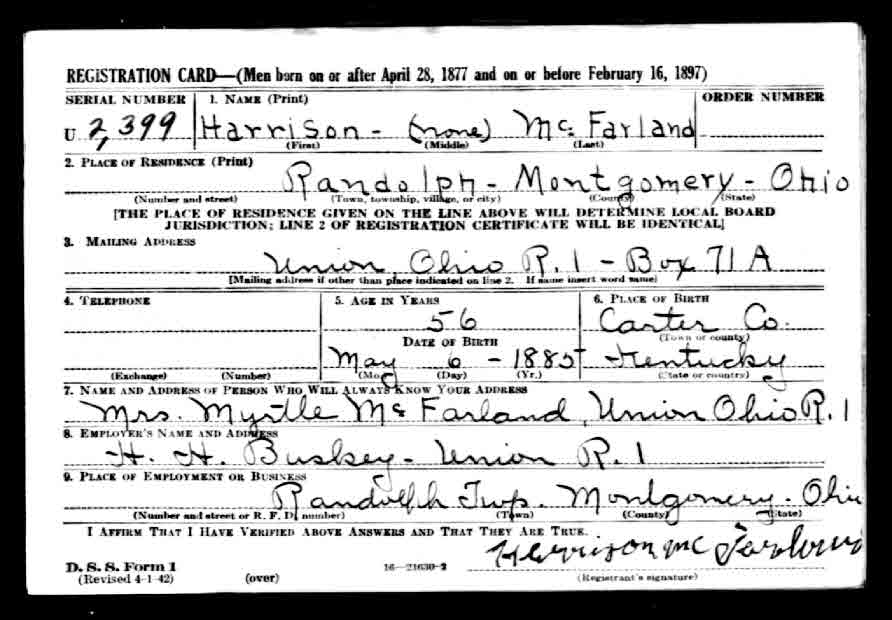 REGISTRATION CARD—(Men born on or after April 28, 1877 and on or before February 16, 1897)
SERIAL NUMBER 1. NAME (Print) ORDER NUMBER
U 2,399 Harrison - (none) McFarland
(First) (Middle) (Last)
2. PLACE OF RESIDENCE (Print)
Randolph - Montgomery - Ohio
(Number and street) (Town, township, village, or city) (County) (State)
[THE PLACE OF RESIDENCE GIVEN ON THE LINE ABOVE WILL DETERMINE LOCAL BOARD
JURISDICTION; LINE 2 OF REGISTRATION CERTIFICATE WILL BE IDENTICAL]
3. MAILING ADDRESS
Union, Ohio R. 1 - Box 71 A
[Mailing address if other than place indicated on line 2. If same insert word same]
4. TELEPHONE 5. AGE IN YEARS 6. PLACE OF BIRTH
56 Carter Co.
(Town or county)
DATE OF BIRTH
May 6 - 1885 Kentucky
(Exchange) (Number) (Mo.) (Day) (Yr.) (State or country)
7. NAME AND ADDRESS OF PERSON WHO WILL ALWAYS KNOW YOUR ADDRESS
Mrs. Myrtle McFarland, Union Ohio R. 1
8. EMPLOYER'S NAME AND ADDRESS
H. H. Buskey - Union R. 1
9. PLACE OF EMPLOYMENT OR BUSINESS
Randolph Twp. Montgomery - Ohio
(Number and street or R. F. D. number) (Town) (County) (State)
I AFFIRM THAT I HAVE VERIFIED ABOVE ANSWERS AND THAT THEY ARE TRUE.
Herrison mc Farland
D. S. S. Form 1
(Revised 4-1-42) (over) 16—21630-2 (Registrant's signature)